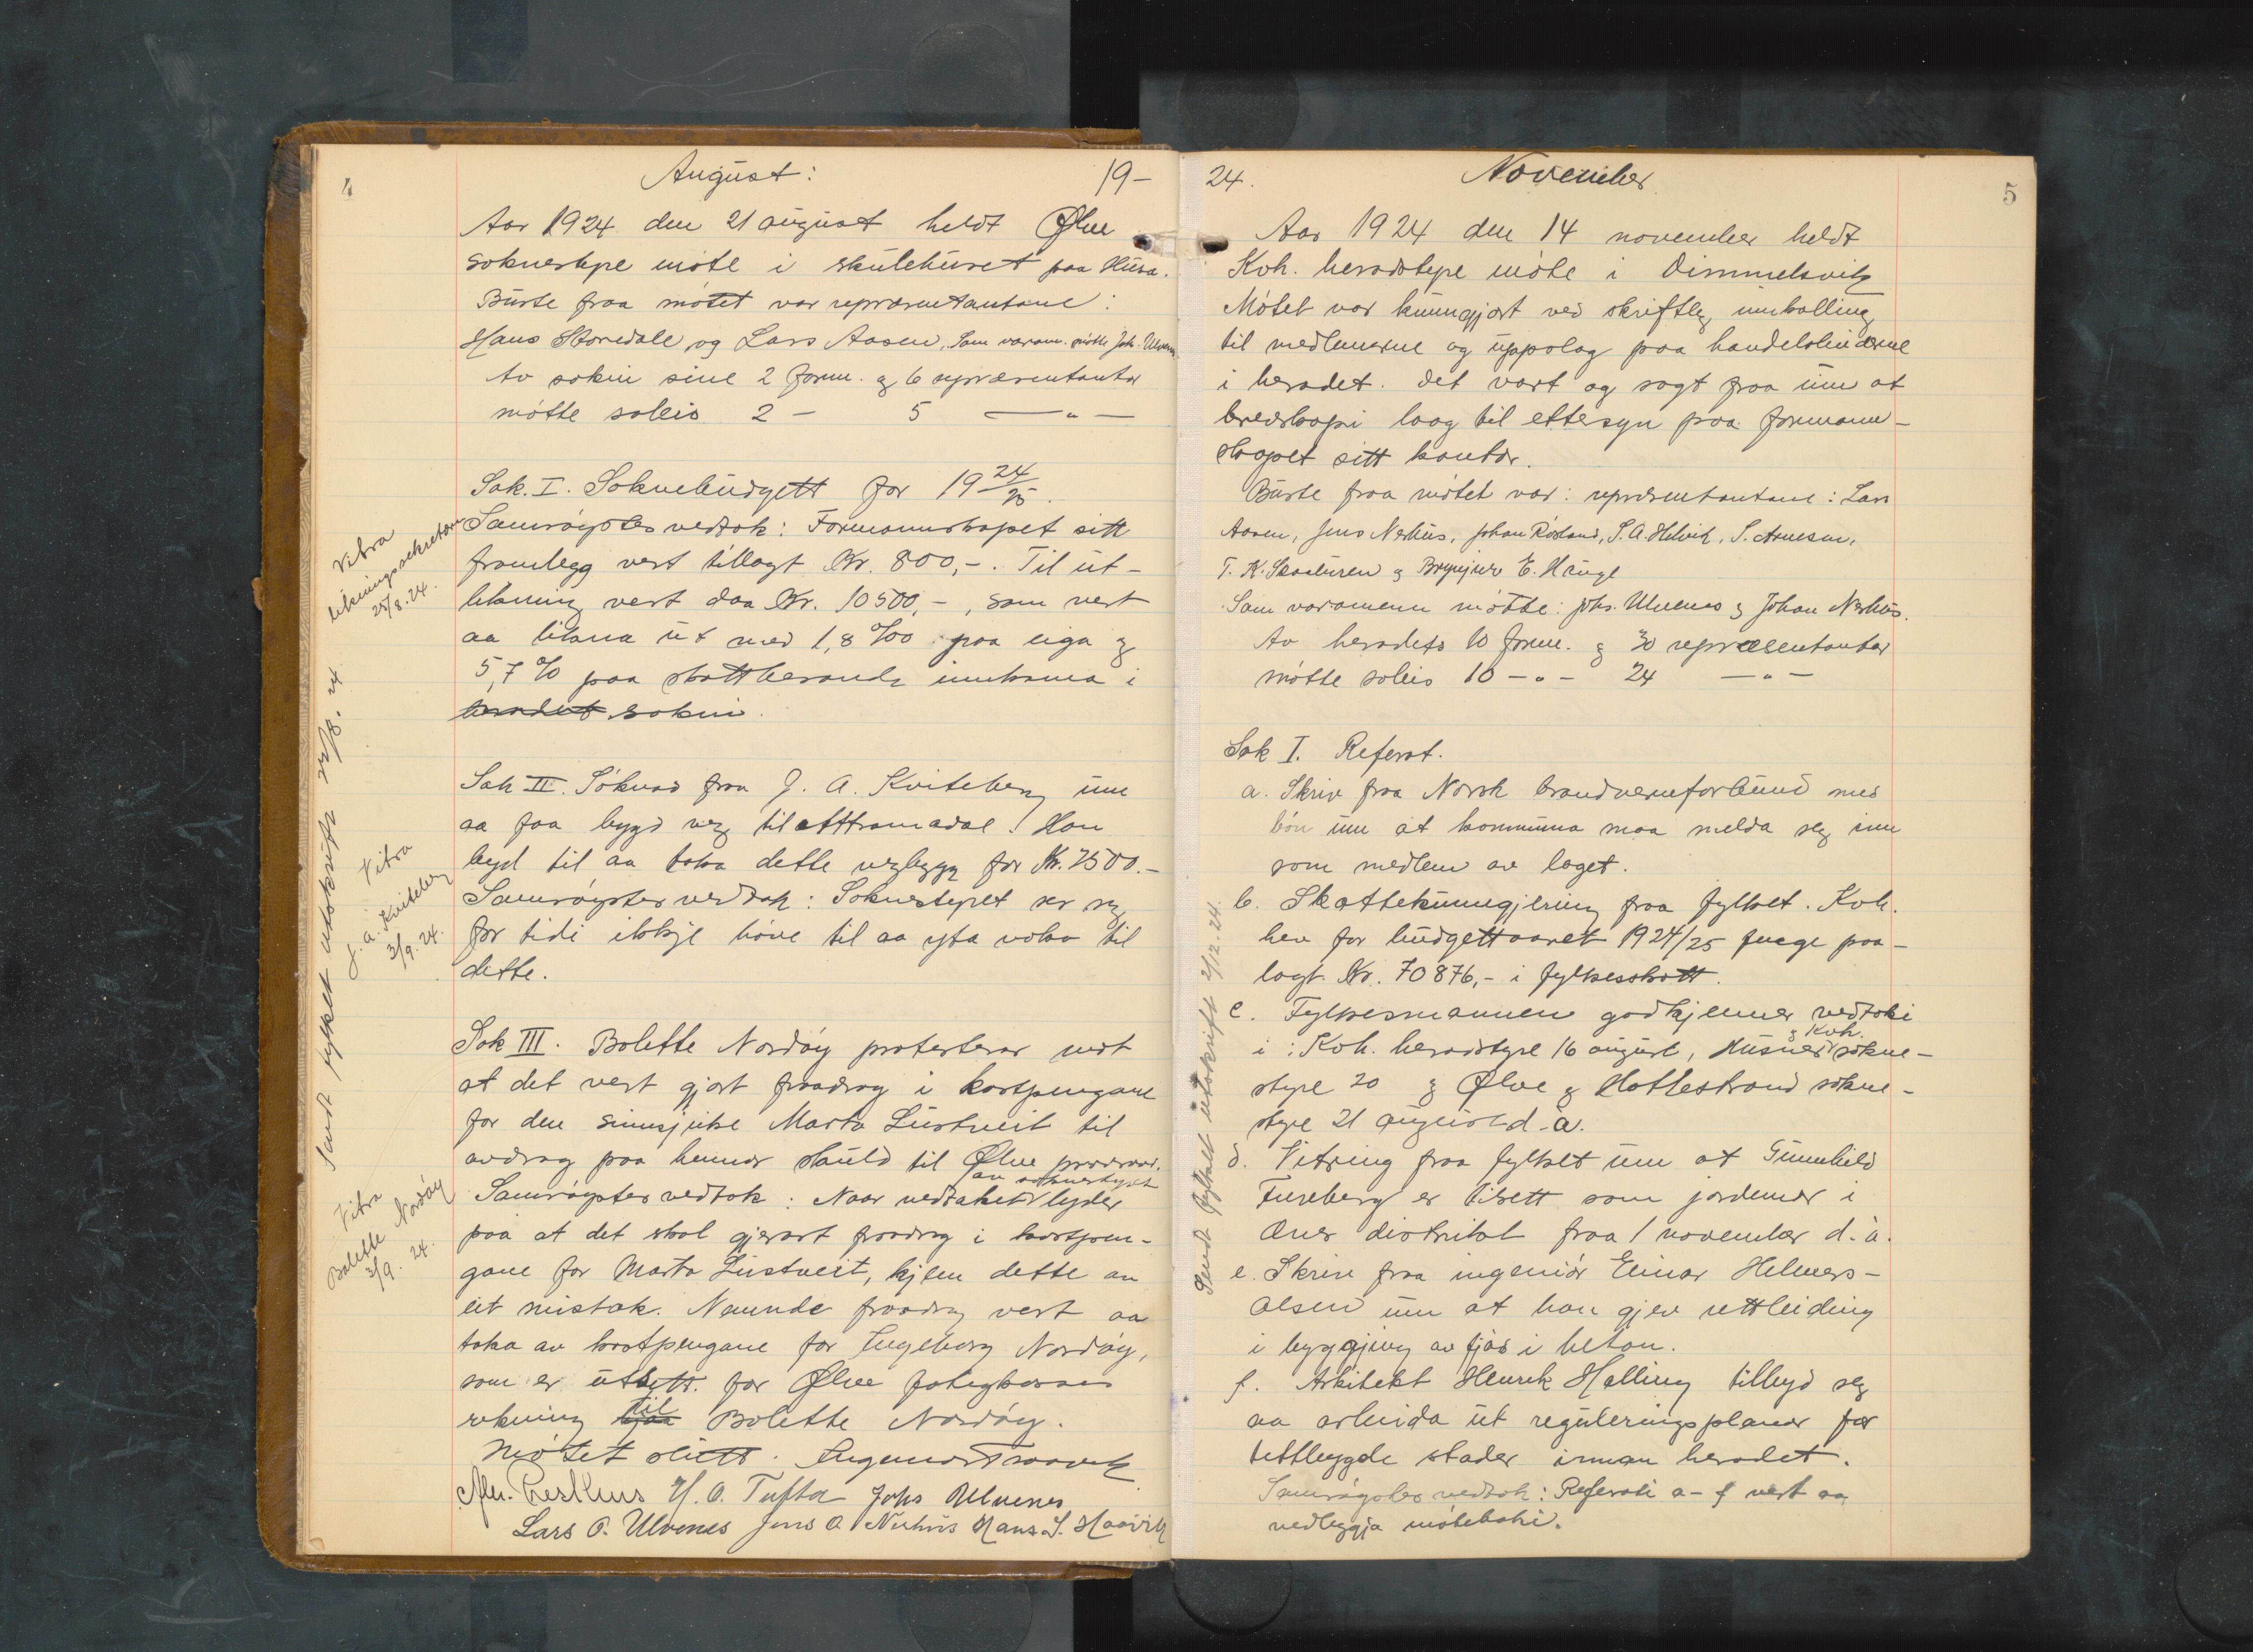 4
August: 19-
Aar 1924 den 21 august heldt Ølve
soknestyre møte i skulehuset paa Husa.
Burte fraa møtet var representantane:
Hans Storedale og Lars Aasen, Som varam. møtte Joh. Ulvenes
Av sokni sine 2 form. og 6 representantar
møtte soleis 2 - 5 — " —
Sak. I. Soknebudgett for 19 24/25.
Samrøystes vedtok: Formannskapet sitt
framlegg vert tillagt Kr. 800,-. Til ut-
likning vert daa Kr. 10500,-, som vert
aa likna ut med 1,8 ‰ paa eiga og
5,7 % paa skattberande innkoma i
heradet sokni.
Vitra
likningssekretæren
25/8.24.
Sak II. Søknad fraa J. A. Kviteberg um
aa faa bygd veg til Attramadal. Han
byd til aa taka dette vegbygg for Kr. 7500.-
Samrøystes vedtok: Soknestyret ser seg
for tidi ikkje høve til aa yta noko til
dette.
Vitra
J. A. Kviteberg
3/9.24.
Sak III. Bolette Nordøy protesterar mot
at det vert gjort fraadrag i kostpengane
for den sinnsjuke Marta Lustveit til
avdrag paa hennar skuld til Ølve
av soknestyret
Samrøystes vedtok: Naar vedtaket lyder
paa at det skal gjerast fraadrag i kostpen-
gane for Marta Lustveit, kjem dette av
eit mistak. Nemnde fraadrag vert aa
taka av kostpengane for Ingeborg Nordøy,
som er utsett for Ølve fatigkassas
rekning hjaa til Bolette Nordøy.
Vitra
Bolette Nordøy
3/9. 24.
Sendt fylket utskrift 23/8. 24.
Møtet slutt. Ingemar Traavik
H. O. Tufta Johs Ulvenes
Lars O. Ulvenes Jens O. Nerhus Hans J. Haavik
24. November 5
Aar 1924 den 14 november heldt
Kvh. heradstyre møte i Dimmelsvik
Møtet var kunngjort ved skriftleg innkalling
til medlemerne og uppslag paa handelsbuderne
i heradet. Det vart og sagt fraa um at
brevskapi laag til ettersyn paa formann-
skapet sitt kontor.
Burte fraa møtet var: representantane: Lars
Aasen, Jens Nerhus, Johan Røsland, S. A. Helvik, S. Arnesen,
T. K. Skaaluren og Brynjulv E. Hauge
Som varamenn møtte: Johs. Ulvenes og Johan Nerhus.
Av heradets 10 form. og 30 representantar
møtte soleis 10 — " — 24 — " —
Sak I. Referat.
a. Skriv fraa Norsk brandvernforbund med
bøn um at kommuna maa melda seg inn
som medlem av laget.
b. Skattekunngjering fraa fylket. Kvh.
hev for budgettaaret 1924/25 fenge paa-
lagt Kr. 70876,- i fylkesskatt.
c. Fylkesmannen godkjenner vedtoki
og Kvh.
i: Kvh. heradstyre 16 august, Husnes sokne-
styre 20 og Ølve og Hatlestrand sokne-
styre 21 august d. å.
d. Vitring fraa fylket um at Gunnhild
Fureberg er tilsett som jordmor i
Ænes distrikt fraa 1 november d. å.
e. Skriv fraa ingeniør Einar Helmers-
Olsen um at han gjev rettleiding
i byggjing av fjøs i beton.
f. Arkitekt Henrik Helling tilbyd seg
aa arbeida ut reguleringsplanar for
tettbygde stader innan heradet.
Samrøystes vedtok: Referati a-f vert aa
vedleggja møteboki.
Sendt fylket utskrift 2/12. 24.